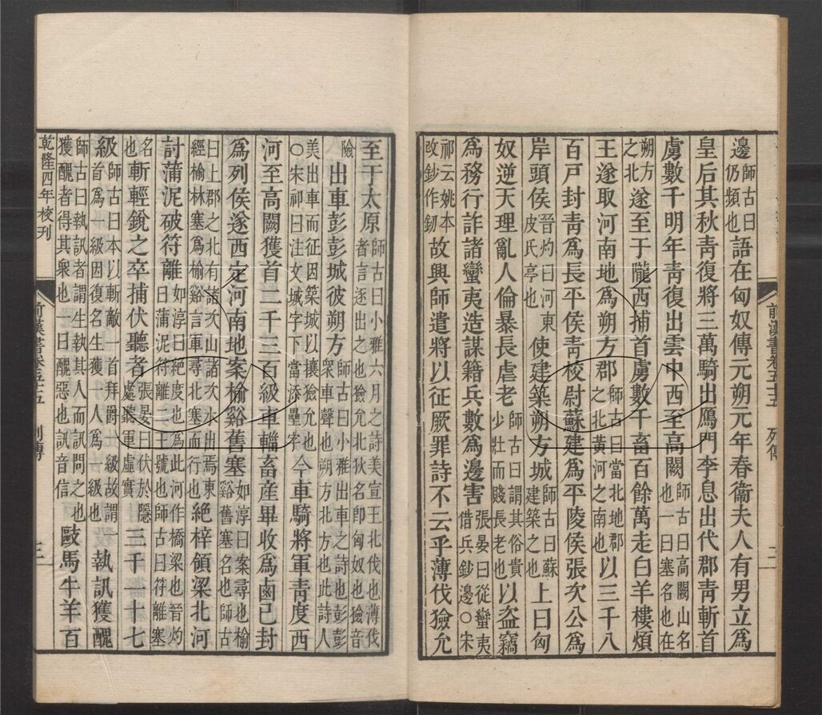 邊師古曰仍頻也語在匈奴傳元朔元年春衞夫人有男立爲
皇后其秋青復將三萬騎出鴈門李息出代郡青斬首
虜數千明年青復出雲中西至高闕師古曰高闕山名也一曰塞名也在
朔方之北遂至于隴西捕首虜數千畜百餘萬走白羊樓煩
王遂取河南地爲朔方郡師古曰當北地郡之北黃河之南也以三千八
百戸封青爲長平侯青校尉蘇建爲平陵侯張次公爲
岸頭侯晉灼曰河東皮氏亭也使建築朔方城師古曰蘇建築之也上曰匈
奴逆天理亂人倫暴長虐老師古曰謂其俗貴少壯而賤長老也以盗竊
爲務行詐諸蠻夷造謀籍兵數爲邊害張晏曰從蠻夷借兵鈔邊○宋
祁云姚本改鈔作故興師遣將以征厥罪詩不云乎薄伐獫允
至于太原師古曰小雅六月之詩美宣王北伐也薄伐者言逐出之也獫允北狄名即匈奴也獫音
險出車彭彭城彼朔方師古曰小雅出車之詩也彭彭衆車聲也朔方北方也此詩人
美出車而征因築城以攘獫允也○宋祁曰注文城字下當添壘字今車騎將軍青度西
河至高闕獲首二千三百級車輜畜産畢收爲鹵已封
爲列侯遂西定河南地案榆谿舊塞如淳曰案尋也榆谿舊塞名也師古
曰上郡之北有諸次山諸次水出焉東經榆林塞爲榆谿言軍尋北塞而行也絕梓領梁北河
討蒲泥破符離如淳曰絕度也爲北河作橋梁也晉灼曰蒲泥符離二王號也師古曰符離塞
名也斬輕銳之卒捕伏聽者張晏曰伏於隱處聽軍虛實三千一十七
級師古曰本以斬敵一首拜爵一級故謂一首爲一級因復名生獲一人爲一級也執訊獲醜
師古曰執訊者謂生執其人而訊問之也獲醜者得其衆也一曰醜惡也訊音信敺馬牛羊百
乾隆四年校刊
前漢書卷五十五 列傳 三